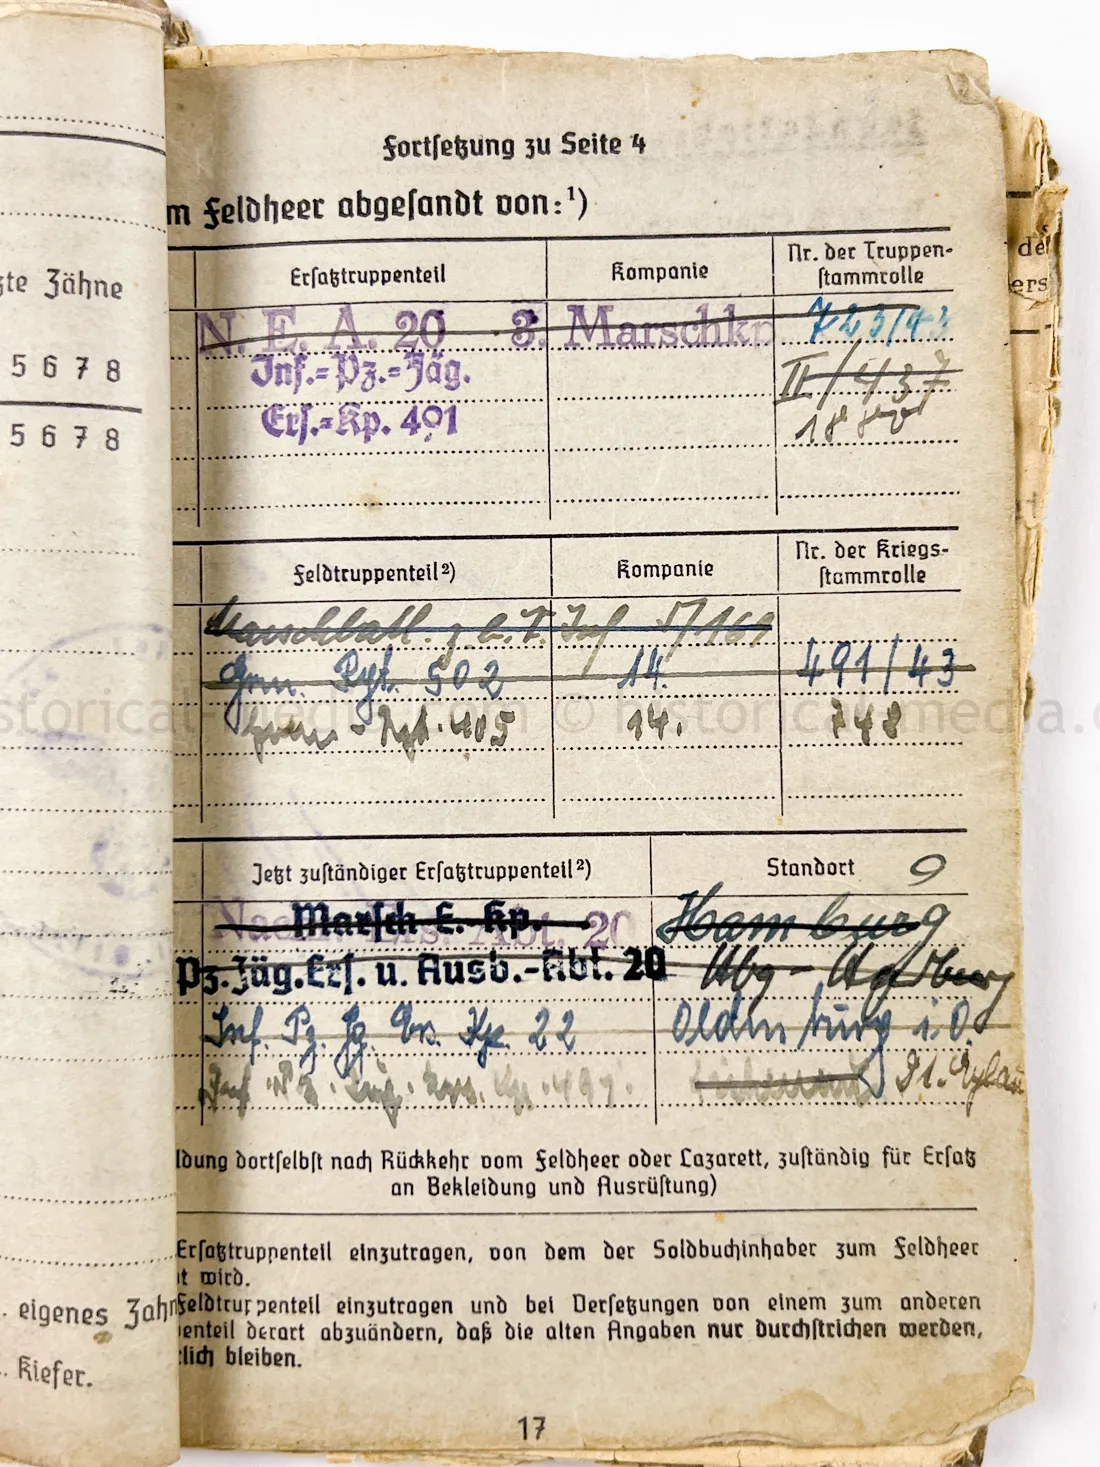 Fortsetzung zu Seite 4
m Feldheer abgesandt von:¹)
Ersatztruppenteil Kompanie Nr. der Truppen-
stammrolle
N. E. A. 20 3. Marschkp 723/43
Inf.=Pz.=Jäg. II/437
Ers.=Kp. 491 18
Feldtruppenteil²) Kompanie Nr. der Kriegs-
stammrolle
Marschbatl. z. b. V. Inf /169
Gren. Rgt. 502 14. 491/43
Gren-Rgt. 405 14. 748
Jetzt zuständiger Ersatztruppenteil²) Standort 9
Nachr. Ers. Abt. 20
Marsch E. Kp. Hamburg
Pz.Jäg.Ers. u. Ausb.-Abt. 20 Hbg -
Inf. Pz. Jg. Ers. Kp. 22 Oldenburg i. O.
Inf. Pz. Jäg. Ers. Kp. 491.
ldung dortselbst nach Rückkehr vom Feldheer oder Lazarett, zuständig für Ersatz
an Bekleidung und Ausrüstung)
Ersatztruppenteil einzutragen, von dem der Soldbuchinhaber zum Feldheer
t wird.
Feldtruppenteil einzutragen und bei Versetzungen von einem zum anderen
enteil derart abzuändern, daß die alten Angaben nur durchstrichen werden,
lich bleiben.
17
te Zähne
5 6 7 8
5 6 7 8
. eigenes Zahn
. Kiefer.
de
ers
storical-media.com © historical-media.c